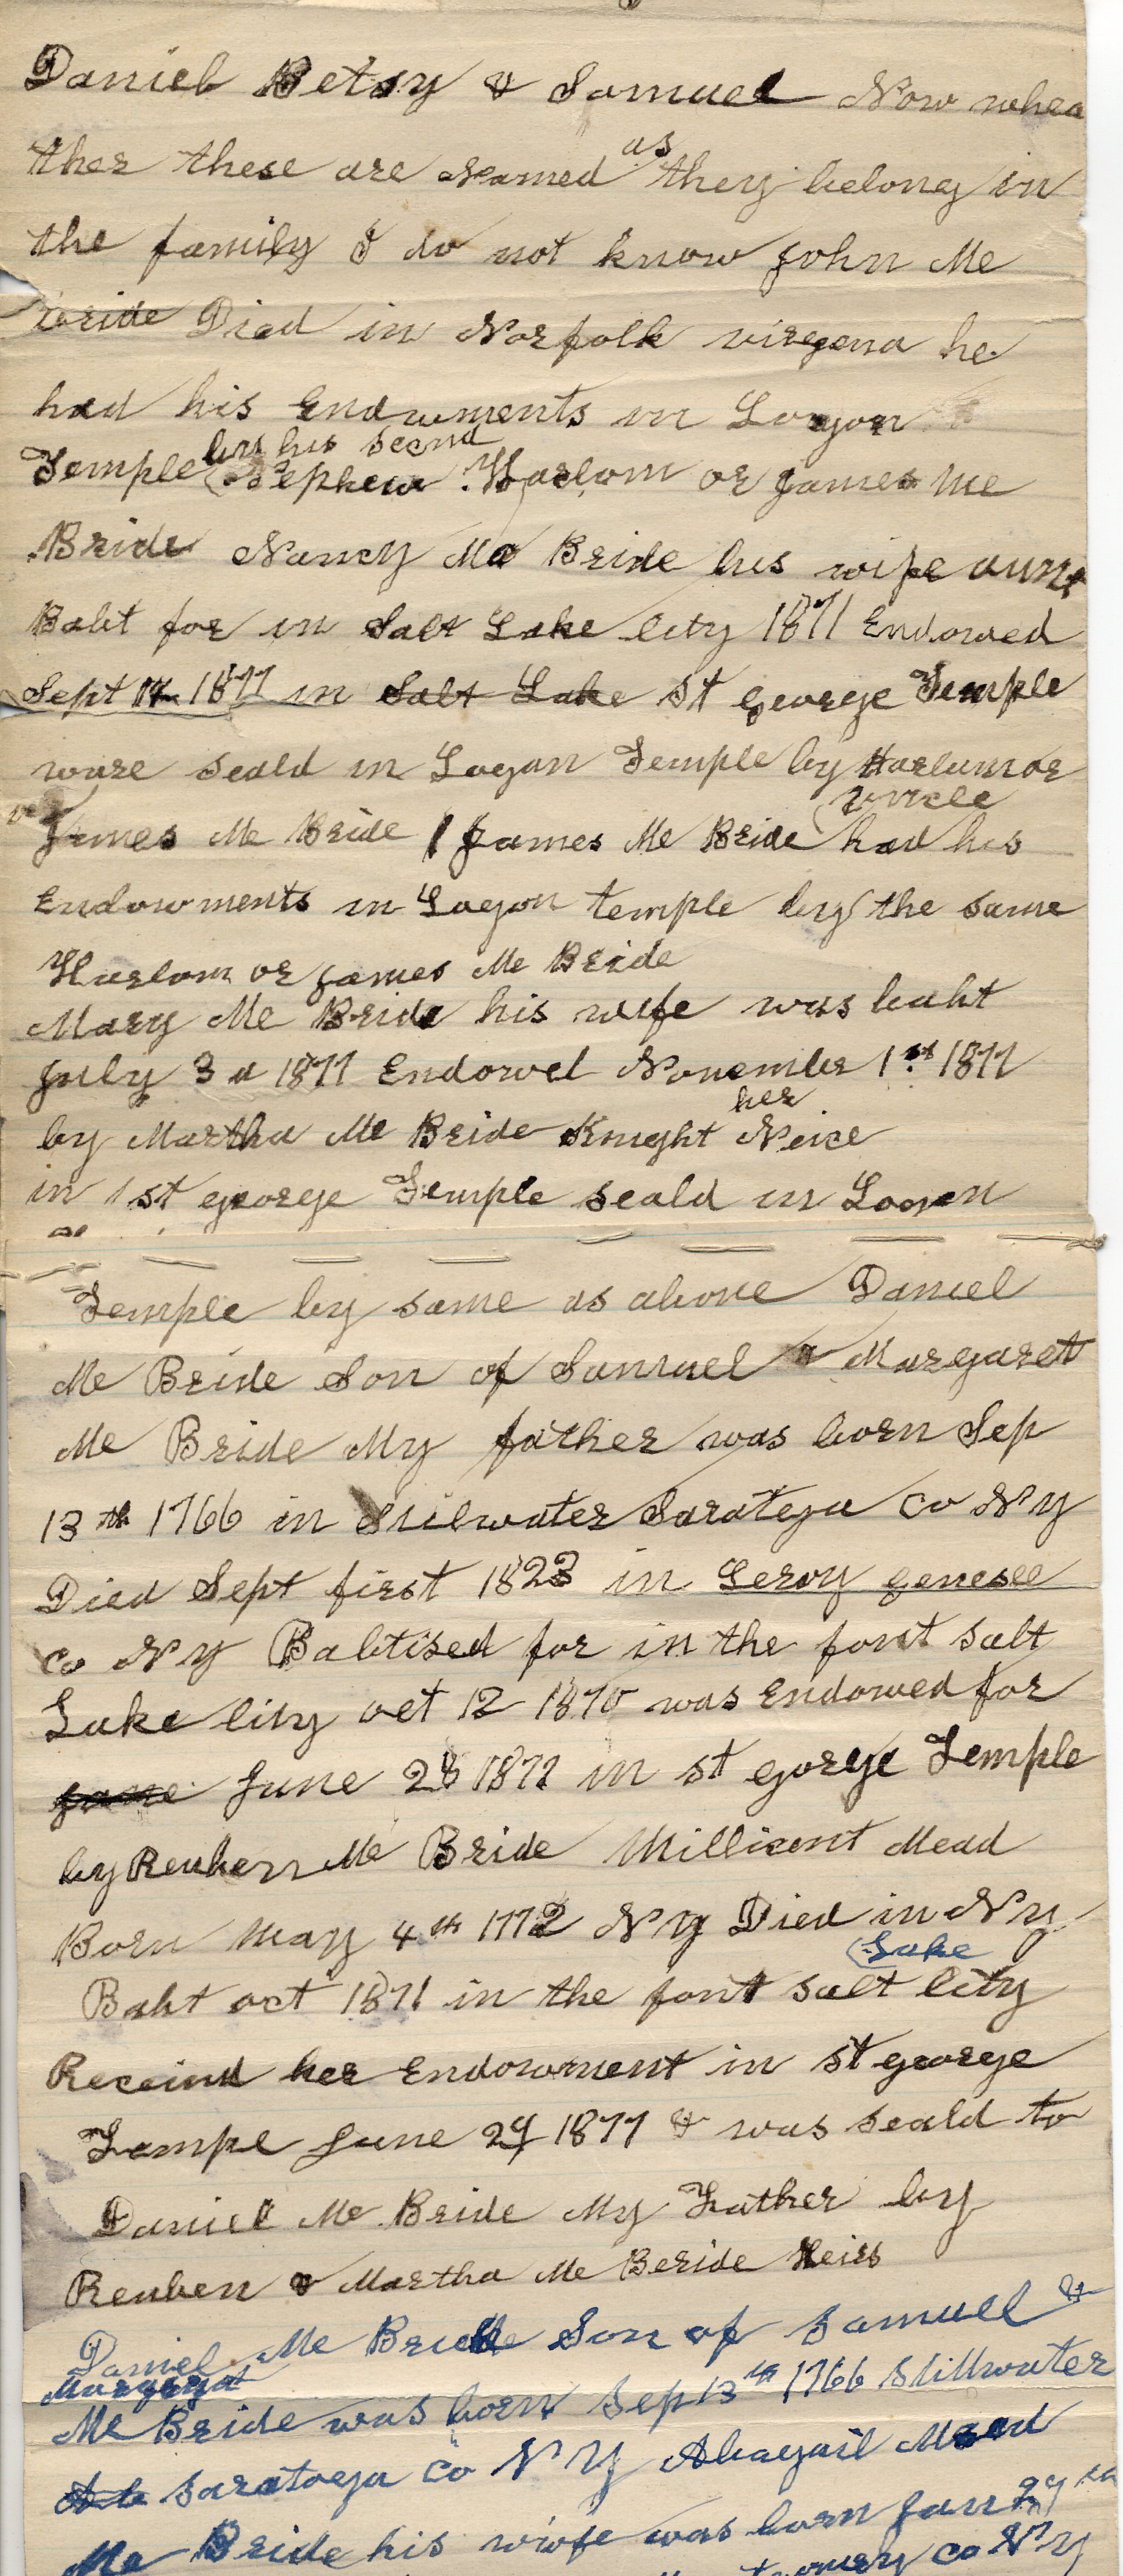 Daniel Betsy & Samuel Now whea
ther these are Named as they belong in
the family I do not know John Mc
bride Died in Norfolk virgena he
had his Endwments in Logon
Temple (by his secnd Nephew Harlom or James Mc
Bride Nancy Mc Bride his wife aunt
Babt for in Salt Lake City 1871 Endowed
Sept 14 1877 in Salt Lake St George Temple
ware seald in Logan Temple by Harlum or
James Mc Bride James Mc Bride (uncle had his
Endowments in Logon temple by the same
Harlom or James Mc Bride
Mary Mc Bride his wife was babt
July 3 d 1877 Endowed November 1st 1877
by Martha Mc Bride Knight her Neice
in st george Temple seald in Logan
Temple by same as above Daniel
Mc Bride Son of Samuel & Margarett
Mc Bride My father was born Sep
13th 1766 in Stilwater Saratega Co N Y
Died Sept first 1823 in Leroy genesee
Co N Y Babtised for in the font salt
Lake City oct 12 1870 was Endowed for
June June 28 1877 in st gorge Temple
by Reuben Mc Bride Millicent Mead
Born May 4th 1772 N Y Died in N Y
Babt oct 1871 in the font salt (Lake City
Receind her Endowment in st george
Tempe June 29 1877 & was seald to
Daniel Mc Bride My Father by
Reuben & Martha Mc Beride Heirs
Daniel Mc Bride Son of Samuel &
Margaret
Mc Bride was born Sep 13th 1766 Stillwater
Saratoga Co N Y Abagail Mead
Mc Bride his wife was born Jan 29 th
Co N Y